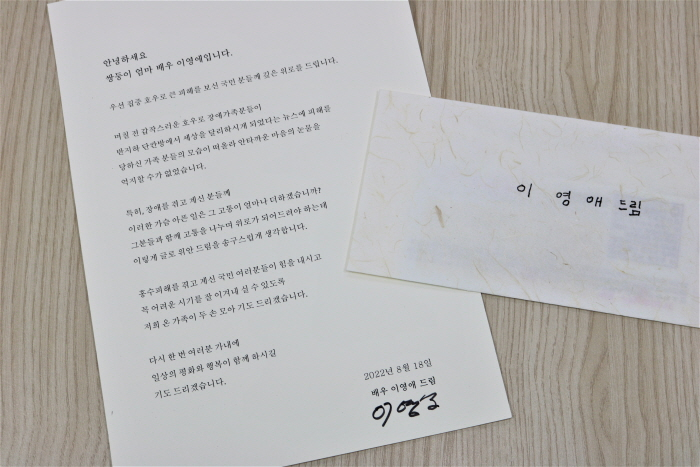 안녕하세요
쌍둥이 엄마 배우 이영애입니다.
우선 집중 호우로 큰 피해를 보신 국민 분들께 깊은 위로를 드립니다.
며칠 전 갑작스러운 호우로 장애가족분들이
반지하 단칸방에서 세상을 달리하시게 되었다는 뉴스에 피해를
당하신 가족 분들의 모습이 떠올라 안타까운 마음의 눈물을
억지할 수가 없었습니다.
특히, 장애를 겪고 계신 분들께
이러한 가슴 아픈 일은 그 고통이 얼마나 더하겠습니까?
그분들과 함께 고통을 나누며 위로가 되어드려야 하는데
이렇게 글로 위안 드림을 송구스럽게 생각합니다.
홍수피해를 겪고 계신 국민 여러분들이 힘을 내시고
꼭 어려운 시기를 잘 이겨내실 수 있도록
저희 온 가족이 두 손 모아 기도 드리겠습니다.
다시 한 번 여러분 가내에
일상의 평화와 행복이 함께 하시길
기도 드리겠습니다.
2022년 8월 18일
배우 이영애 드림
이영애
이 영 애 드림